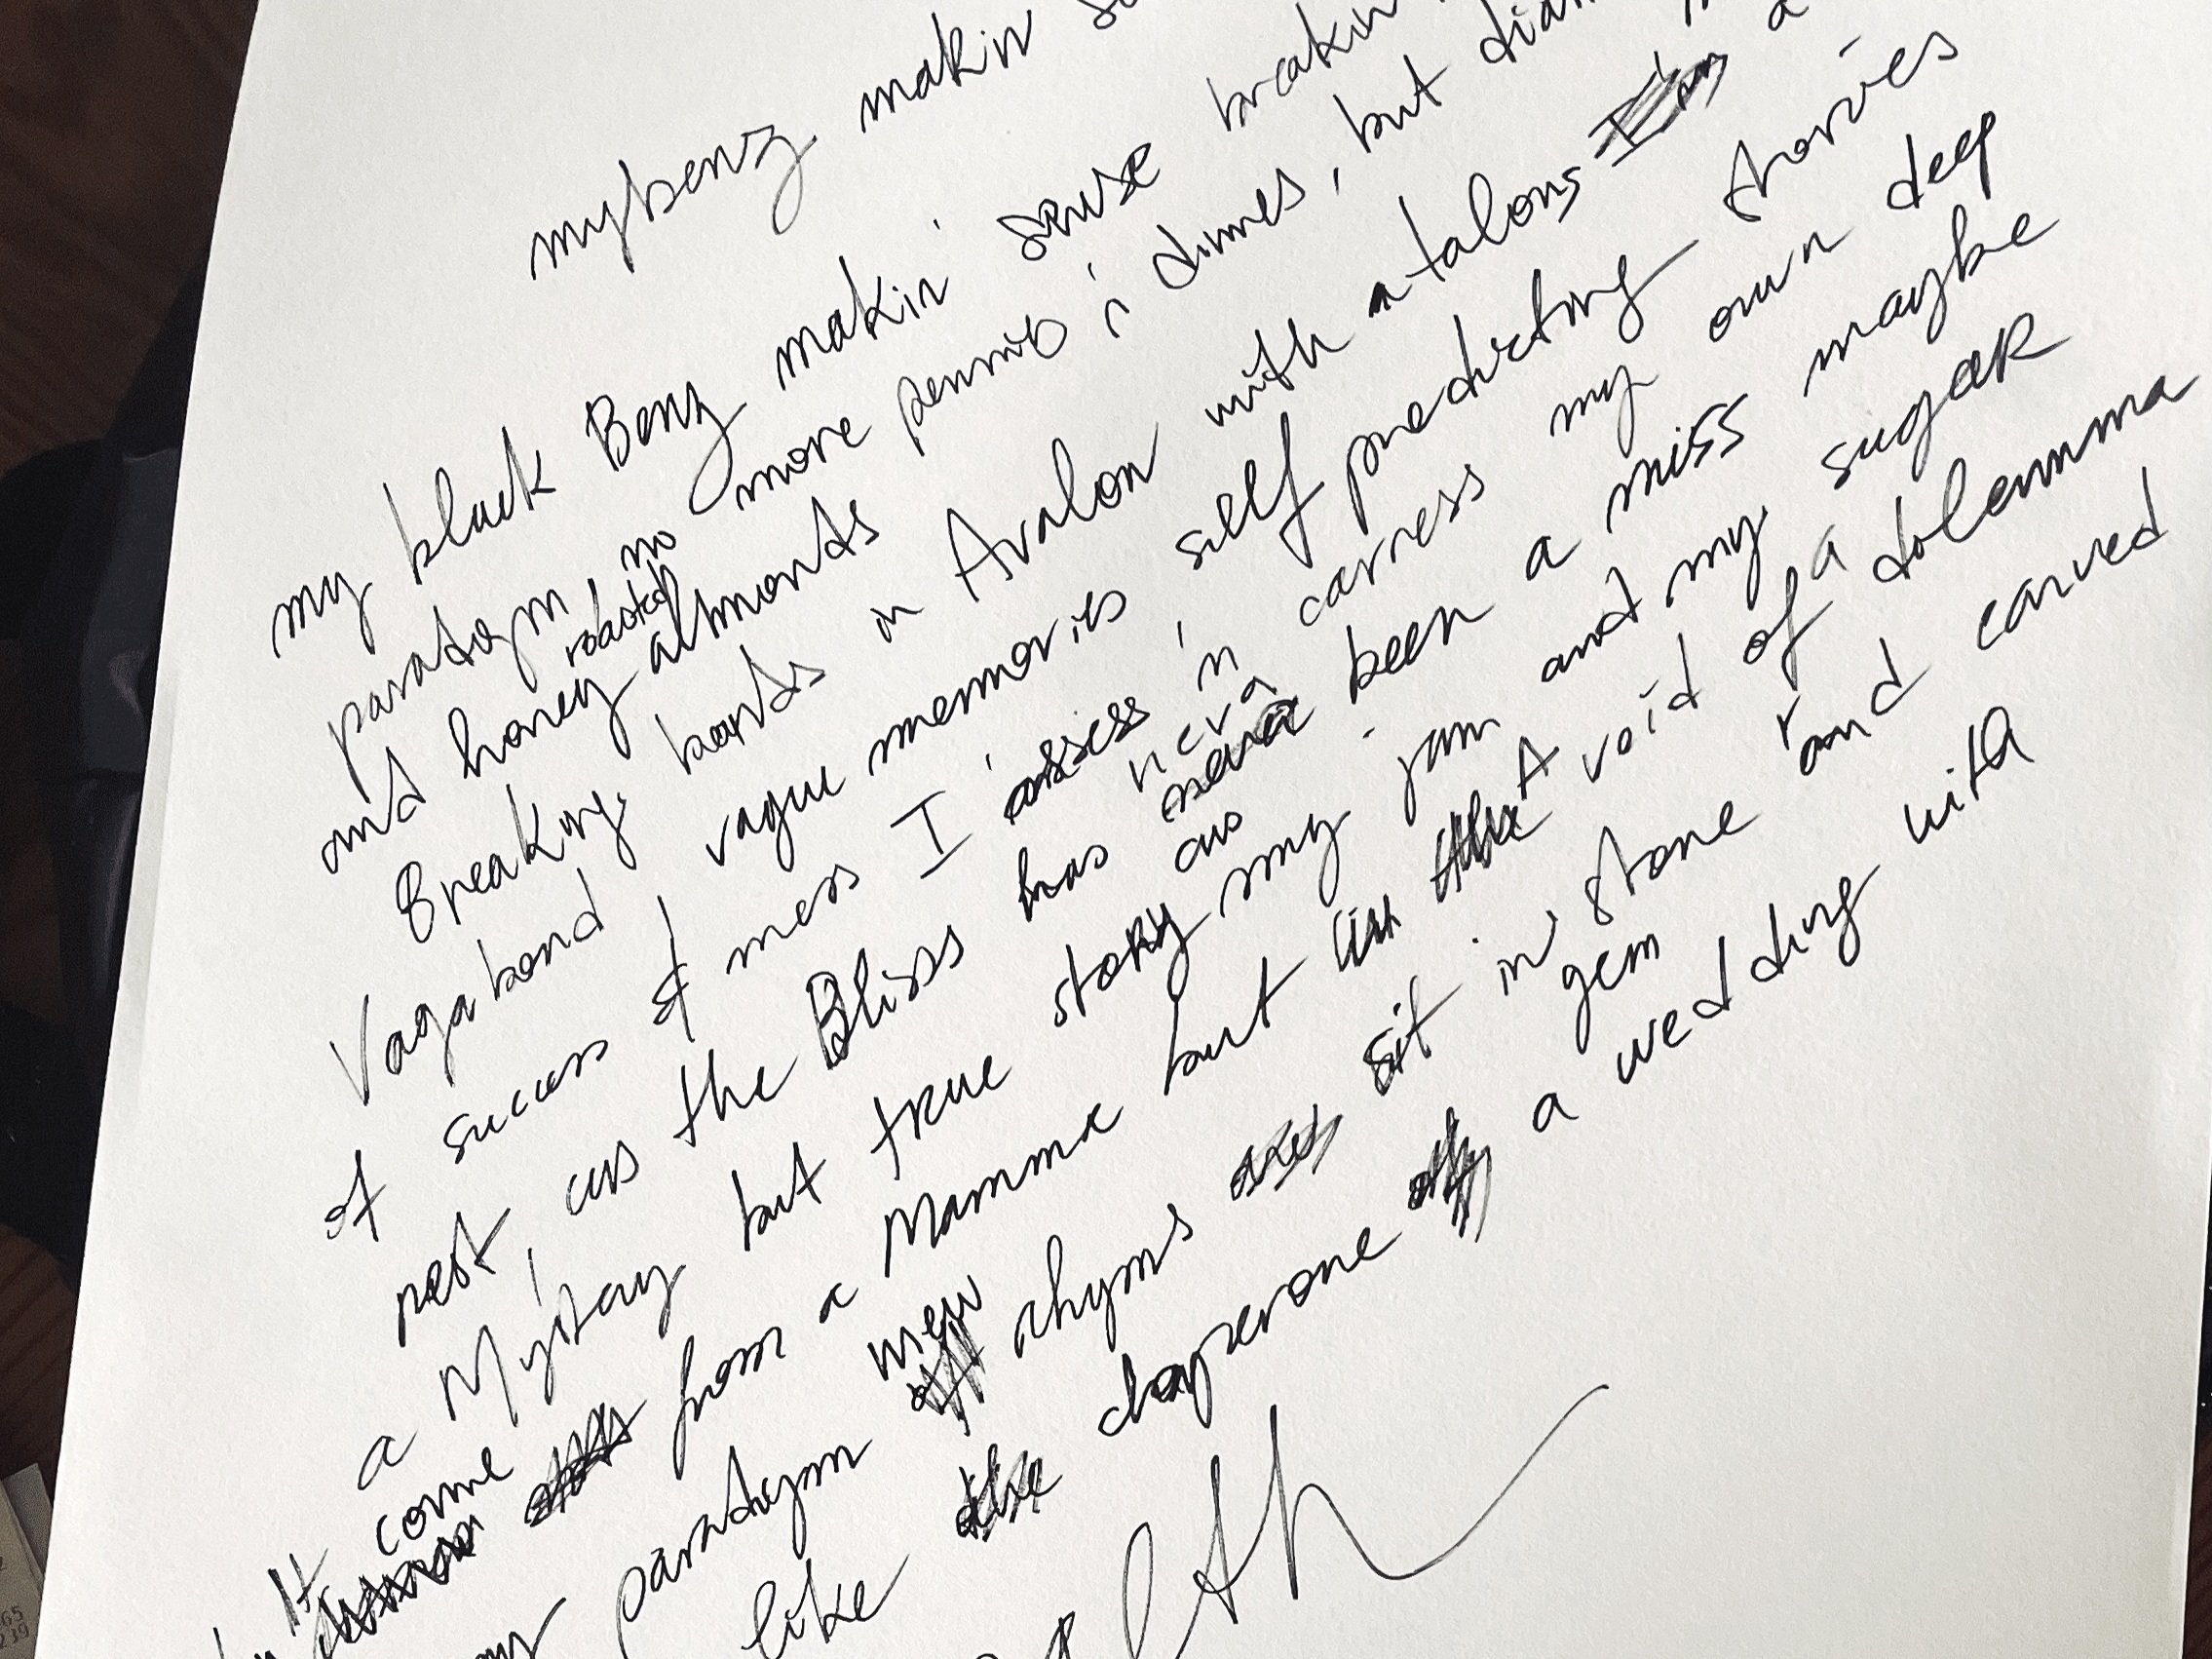 mybenz makin
my black Benz makin' sense breakin
paradigm no more pennies 'n' dimes, but
and honey roasted almonds
Breaking bonds in Avalon with a talons
Vagabond vague memories self predicting
of success & mess I assess 'n caress my own deep
nest, as the Bliss has neva been a miss maybe
a Mystery but true story my jam and my sugar
It come from a Mamma but A void of a dolemma
my paradigm new rhyms sit in stone and carved
like chaperone a wedding with a
gem